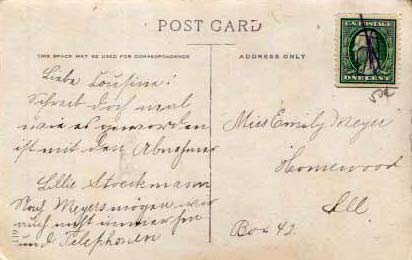 POST CARD
THIS SPACE MAY BE USED FOR CORRESPONDENCE
ADDRESS ONLY
U.S. POSTAGE
ONE CENT
Liebe Cousine!
Schreib doch mal
wie es geworden
ist mit den Abnehmer
Lillie Stoeckmann
Nach Meyers mögen wir
auch nicht immer hin
und Telephonen
Miss Emily Meyer
Homewood
Ill.
Box 42.